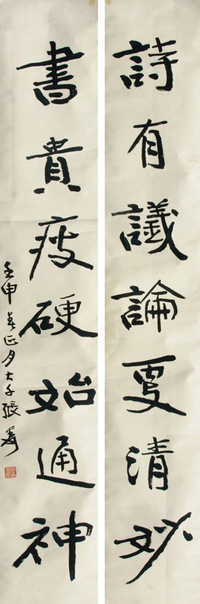 詩有議論更清妙
書貴瘦硬始通神
壬申年正月大千張爰